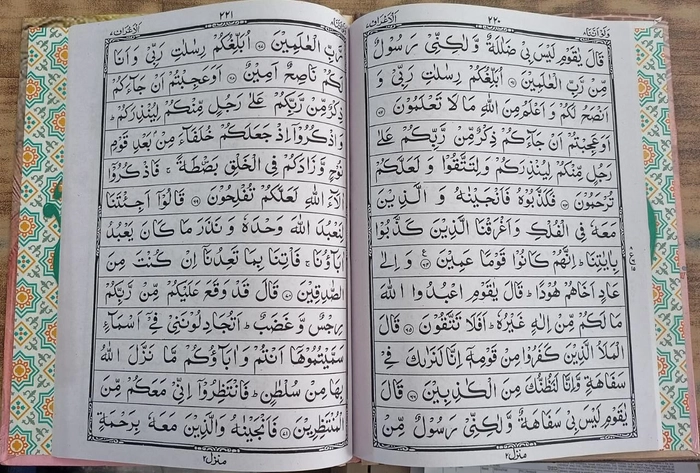 الاعراف ٧ ٢٢٠ ولواننا ٨
قَالَ يٰقَوْمِ لَيْسَ بِيْ ضَلٰلَةٌ وَّ لٰكِنِّيْ رَسُوْلٌ
مِّنْ رَّبِّ الْعٰلَمِيْنَ ﴿٦١﴾ اُبَلِّغُكُمْ رِسٰلٰتِ رَبِّيْ وَ
اَنْصَحُ لَكُمْ وَ اَعْلَمُ مِنَ اللّٰهِ مَا لَا تَعْلَمُوْنَ ﴿٦٢﴾
اَوَعَجِبْتُمْ اَنْ جَآءَكُمْ ذِكْرٌ مِّنْ رَّبِّكُمْ عَلٰى
رَجُلٍ مِّنْكُمْ لِيُنْذِرَكُمْ وَلِتَتَّقُوْا وَ لَعَلَّكُمْ
تُرْحَمُوْنَ ﴿٦٣﴾ فَكَذَّبُوْهُ فَاَنْجَيْنٰهُ وَ الَّذِيْنَ
مَعَهٗ فِي الْفُلْكِ وَ اَغْرَقْنَا الَّذِيْنَ كَذَّبُوْا
بِاٰيٰتِنَا ؕ اِنَّهُمْ كَانُوْا قَوْمًا عَمِيْنَ ﴿٦٤﴾ وَ اِلٰى
عَادٍ اَخَاهُمْ هُوْدًا ؕ قَالَ يٰقَوْمِ اعْبُدُوا اللّٰهَ
مَا لَكُمْ مِّنْ اِلٰهٍ غَيْرُهٗ ؕ اَفَلَا تَتَّقُوْنَ ﴿٦٥﴾ قَالَ
الْمَلَاُ الَّذِيْنَ كَفَرُوْا مِنْ قَوْمِهٖٓ اِنَّا لَنَرٰىكَ فِيْ
سَفَاهَةٍ وَّ اِنَّا لَنَظُنُّكَ مِنَ الْكٰذِبِيْنَ ﴿٦٦﴾ قَالَ
يٰقَوْمِ لَيْسَ بِيْ سَفَاهَةٌ وَّ لٰكِنِّيْ رَسُوْلٌ مِّنْ
منزل ٢
الاعراف ٧ ٢٢١ ولواننا ٨
رَّبِّ الْعٰلَمِيْنَ ﴿٦٧﴾ اُبَلِّغُكُمْ رِسٰلٰتِ رَبِّيْ وَ اَنَا
لَكُمْ نَاصِحٌ اَمِيْنٌ ﴿٦٨﴾ اَوَعَجِبْتُمْ اَنْ جَآءَكُمْ
ذِكْرٌ مِّنْ رَّبِّكُمْ عَلٰى رَجُلٍ مِّنْكُمْ لِيُنْذِرَكُمْ ؕ
وَ اذْكُرُوْٓا اِذْ جَعَلَكُمْ خُلَفَآءَ مِنْۢ بَعْدِ قَوْمِ
نُوْحٍ وَّ زَادَكُمْ فِي الْخَلْقِ بَصْۜطَةً ۚ فَاذْكُرُوْٓا
اٰلَآءَ اللّٰهِ لَعَلَّكُمْ تُفْلِحُوْنَ ﴿٦٩﴾ قَالُوْٓا اَجِئْتَنَا
لِنَعْبُدَ اللّٰهَ وَحْدَهٗ وَ نَذَرَ مَا كَانَ يَعْبُدُ
اٰبَآؤُنَا ۚ فَاْتِنَا بِمَا تَعِدُنَاۤ اِنْ كُنْتَ مِنَ
الصّٰدِقِيْنَ ﴿٧٠﴾ قَالَ قَدْ وَقَعَ عَلَيْكُمْ مِّنْ رَّبِّكُمْ
رِجْسٌ وَّ غَضَبٌ ؕ اَتُجَادِلُوْنَنِيْ فِيْٓ اَسْمَآءٍ
سَمَّيْتُمُوْهَاۤ اَنْتُمْ وَ اٰبَآؤُكُمْ مَّا نَزَّلَ اللّٰهُ
بِهَا مِنْ سُلْطٰنٍ ؕ فَانْتَظِرُوْٓا اِنِّيْ مَعَكُمْ مِّنَ
الْمُنْتَظِرِيْنَ ﴿٧١﴾ فَاَنْجَيْنٰهُ وَ الَّذِيْنَ مَعَهٗ بِرَحْمَةٍ
منزل ٢